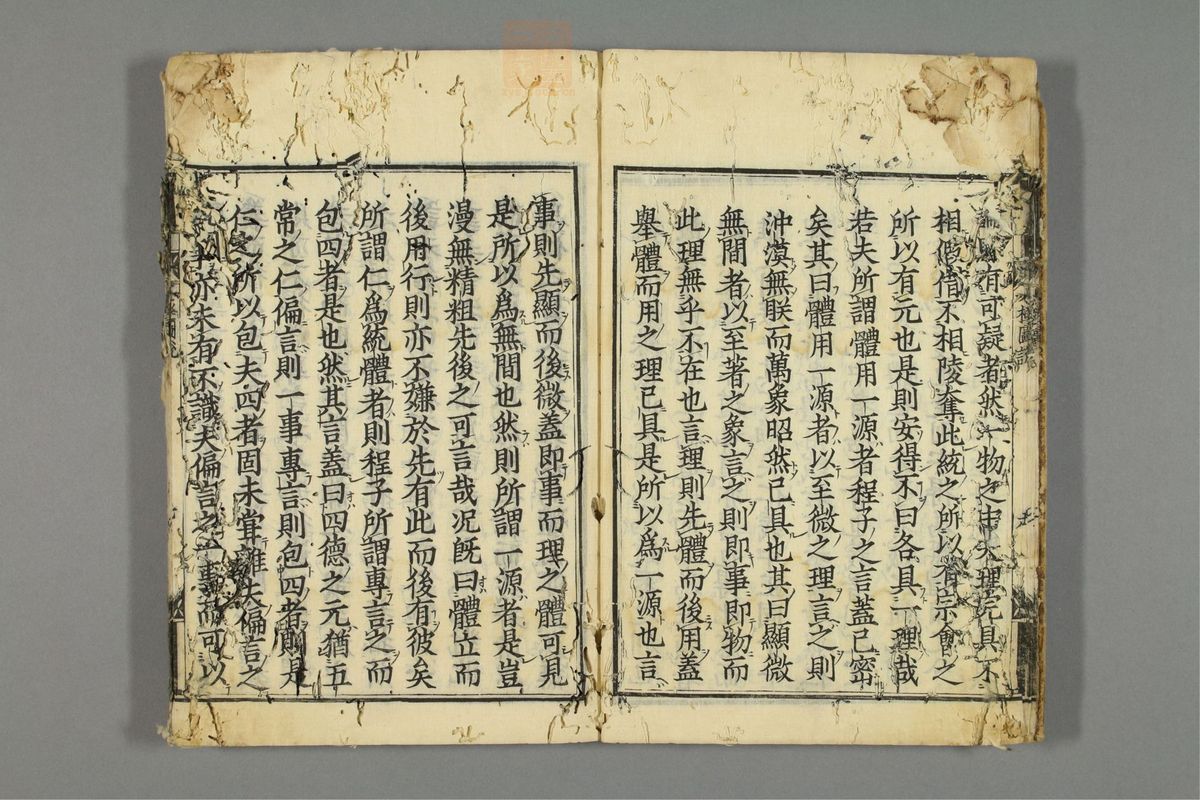 有可疑者然一物之中天理完具不
相假借不相陵奪此統之所以有宗會之
所以有元也是則安得不曰各具一理哉
若夫所謂體用一源者程子之言蓋已密
矣其曰體用一源者以至微之理言之則
沖漠無眹而萬象昭然已具也其曰顯微
無間者以至著之象言之則即事即物而
此理無乎不在也言理則先體而後用蓋
舉體而用之理已具是所以爲一源也言
事則先顯而後微蓋即事而理之體可見
是所以爲無間也然則所謂一源者是豈
漫無精粗先後之可言哉况既曰體立而
後用行則亦不嫌於先有此而後有彼矣
所謂仁爲統體者則程子所謂專言之而
包四者是也然其言蓋曰四德之元猶五
常之仁偏言則一事專言則包四者則是
仁之所以包夫四者固未嘗離夫偏言之
一事亦未有不識夫偏言之一事而可以